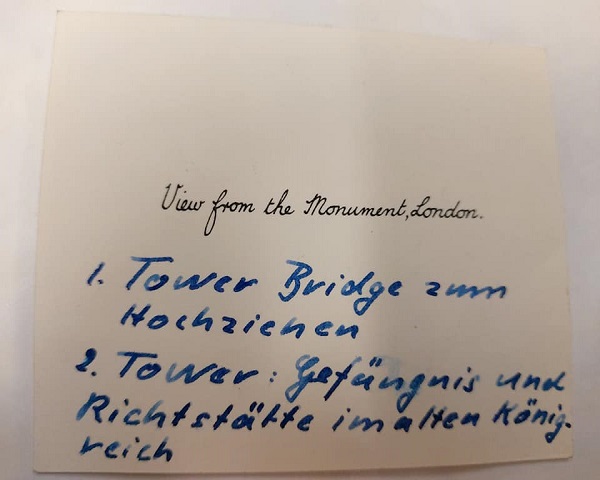 View from the Monument, London.
1. Tower Bridge zum
Hochziehen
2. Tower: Gefängnis und
Richtstätte im alten König-
reich